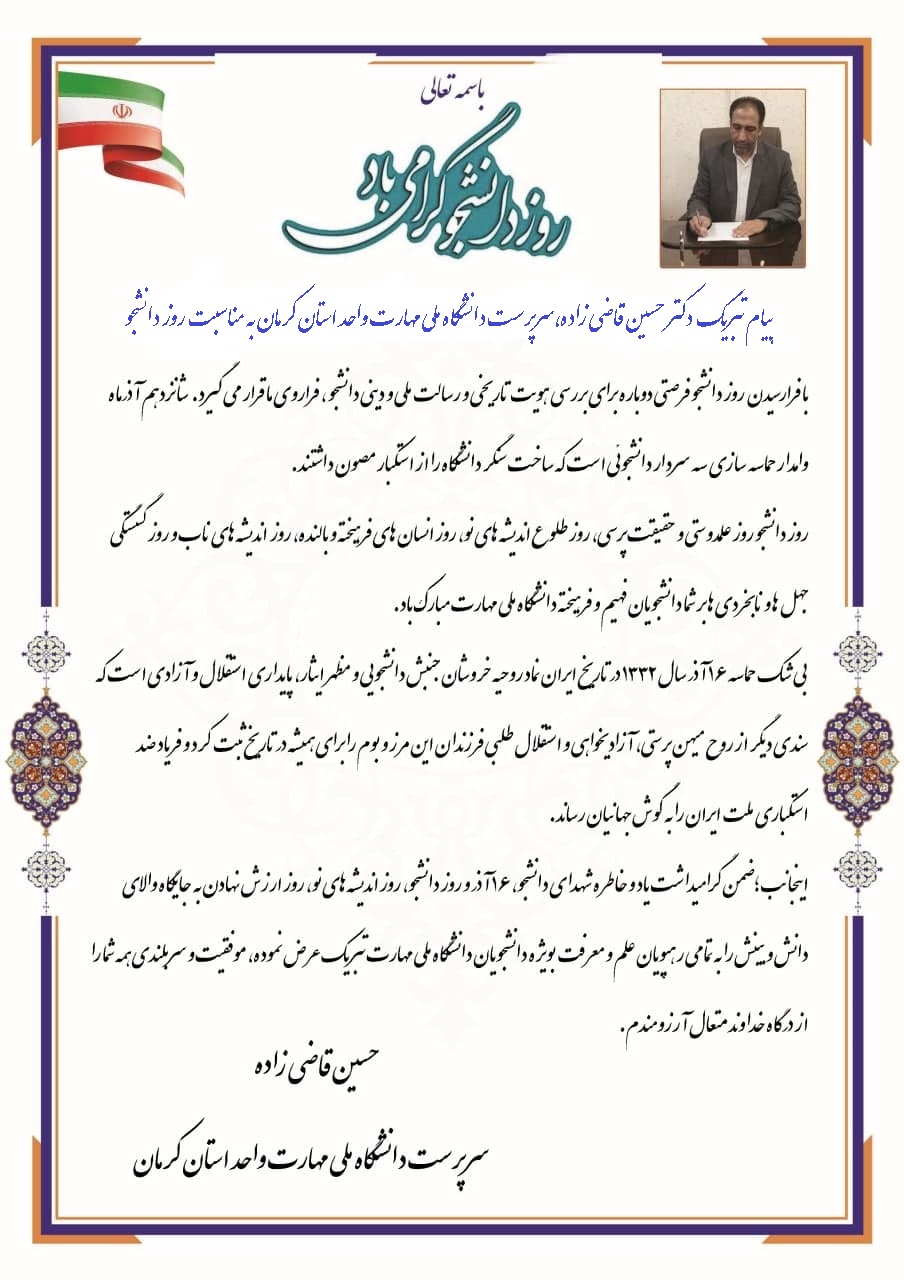 باسمه تعالی
روز دانشجو گرامی باد
پیام تبریک دکتر حسین قاضی زاده، سرپرست دانشگاه ملی مهارت واحد استان کرمان به مناسبت روز دانشجو
با فرارسیدن روز دانشجو فرصتی دوباره برای بررسی هویت تاریخی و رسالت ملی و دینی دانشجو، فراروی ما قرار می گیرد. شانزدهم آذرماه
وامدار حماسه سازی سه سردار دانشجوئی است که ساخت سنگر دانشگاه را از استکبار مصون داشتند.
روز دانشجو روز علمدوستی و حقیقت پرسی، روز طلوع اندیشه های نو، روز انسان های فرهیخته و بالنده، روز اندیشه های ناب و روز گسستگی
جهل ها و نابخردی ها بر شما دانشجویان فهیم و فرهیختة دانشگاه ملی مهارت مبارک باد.
بی شک حماسه ۱۶ آذر سال ۱۳۳۲ در تاریخ ایران نماد روحیه خروشان جنبش دانشجویی و مظهر ایثار، پایداری استقلال و آزادی است که
سندی دیگر از روح میهن پرستی، آزادیخواهی و استقلال طلبی فرزندان این مرز و بوم را برای همیشه در تاریخ ثبت کرد و فریاد ضد
استکباری ملت ایران را به گوش جهانیان رساند.
اینجانب؛ ضمن گرامیداشت یاد و خاطره شهدای دانشجو، ۱۶ آذر و روز دانشجو، روز اندیشه های نو، روز ارزش نهادن به جایگاه والای
دانش و بینش را به تمامی رهپویان علم و معرفت بویژه دانشجویان دانشگاه ملی مهارت تبریک عرض نموده، موفقیت و سربلندی همه شما را
از درگاه خداوند متعال آرزومندم.
حسین قاضی زاده
سرپرست دانشگاه ملی مهارت واحد استان کرمان